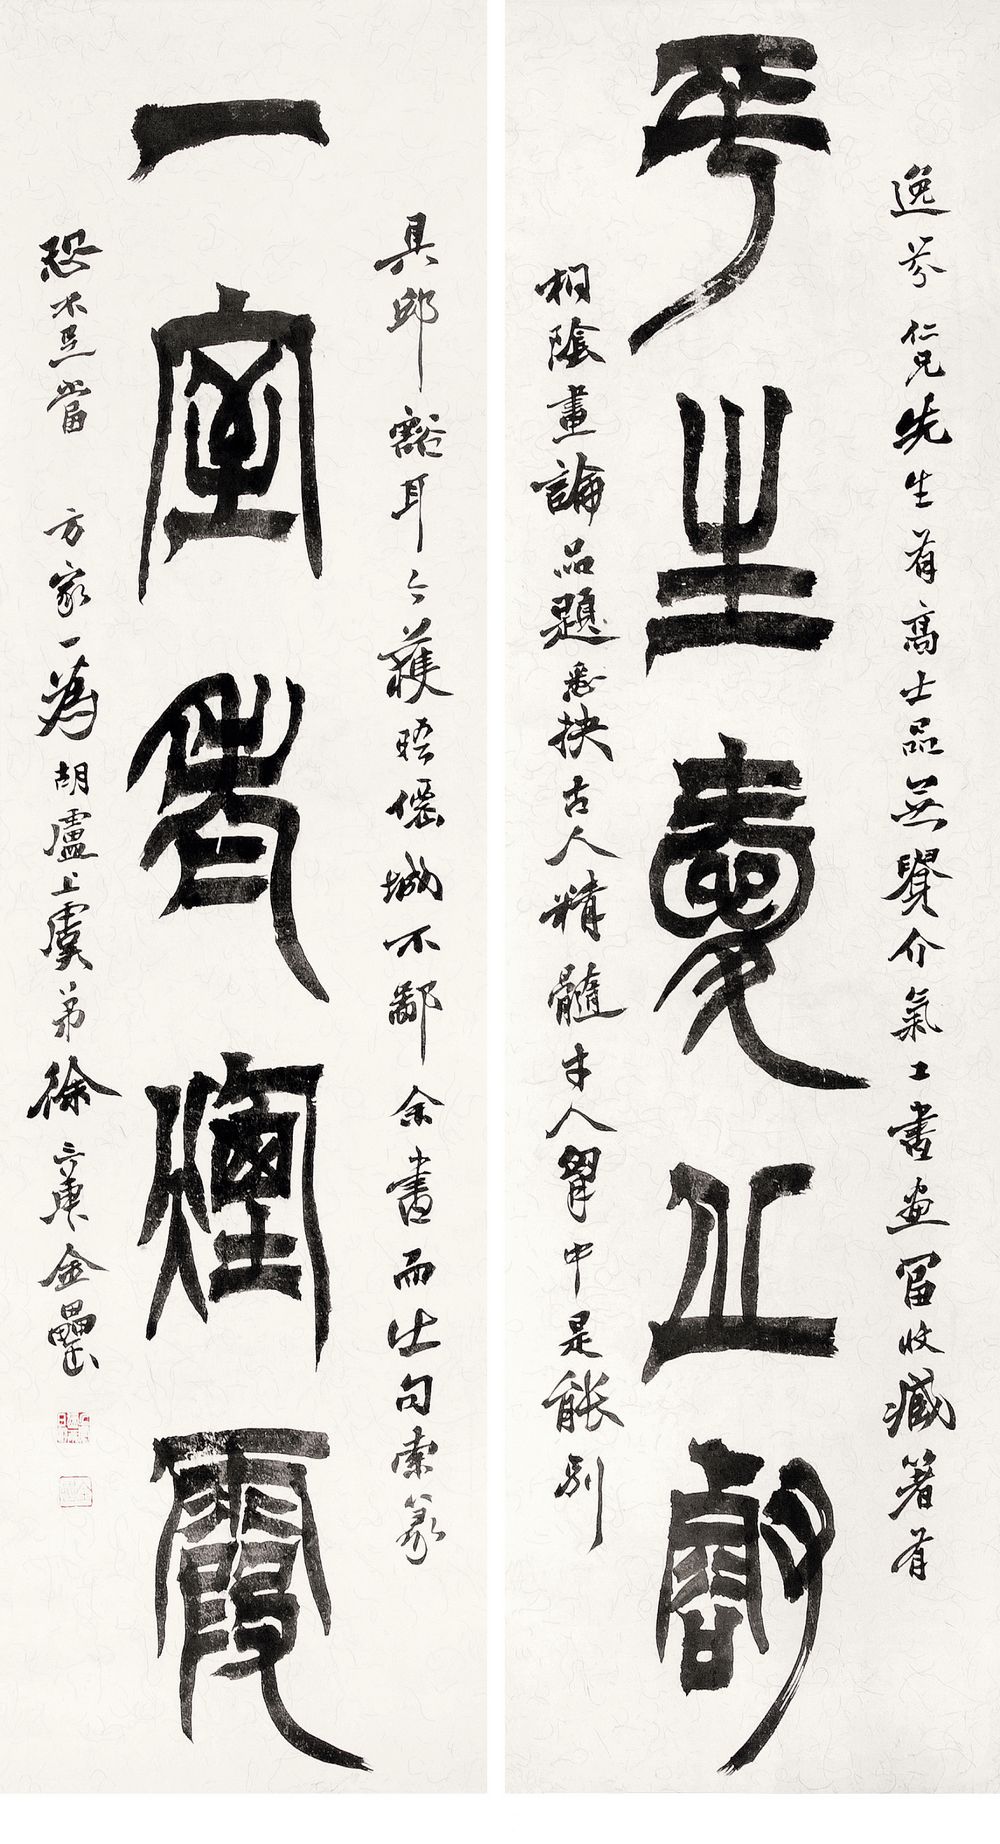 逸芬仁兄先生有高士品無介氣工書画富收臧箸有
平生愛丘壑
桐陰畫論品題悉抉古人精髓才人胷中是能別
具邱豁耳今獲晤僊城不鄙余書而句索篆
一室老煙霞
恐不足當方家一為胡盧上虞弟徐三庚金罍